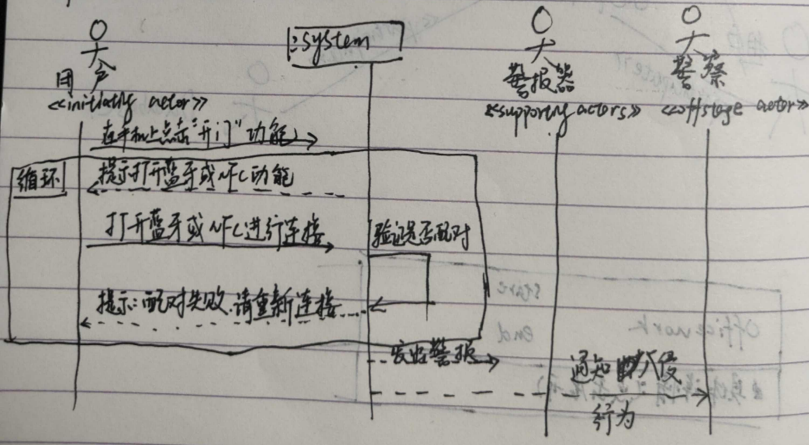 :system
用户
<<initiating actor>>
警报器
<<supporting actors>>
警察
<<offstage actor>>
在手机上点击"开门"功能
循环
提示打开蓝牙或NFC功能
打开蓝牙或NFC进行连接
验证是否配对
提示:配对失败.请重新连接
发出警报
通知
入侵
行为